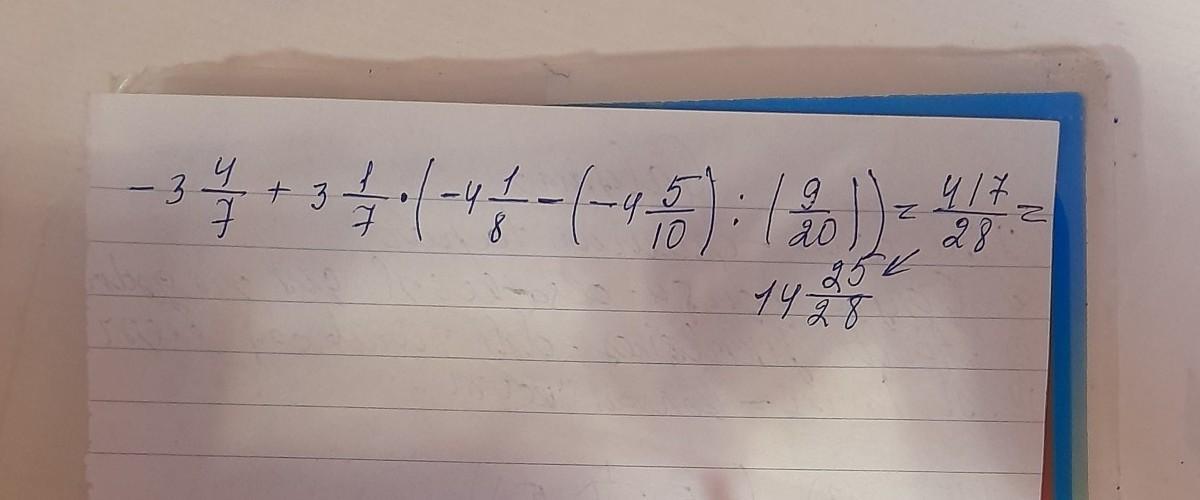 -3 4/7 + 3 1/7 · (-4 1/8 - (-4 5/10) : (9/20)) = 417/28 =
14 25/28